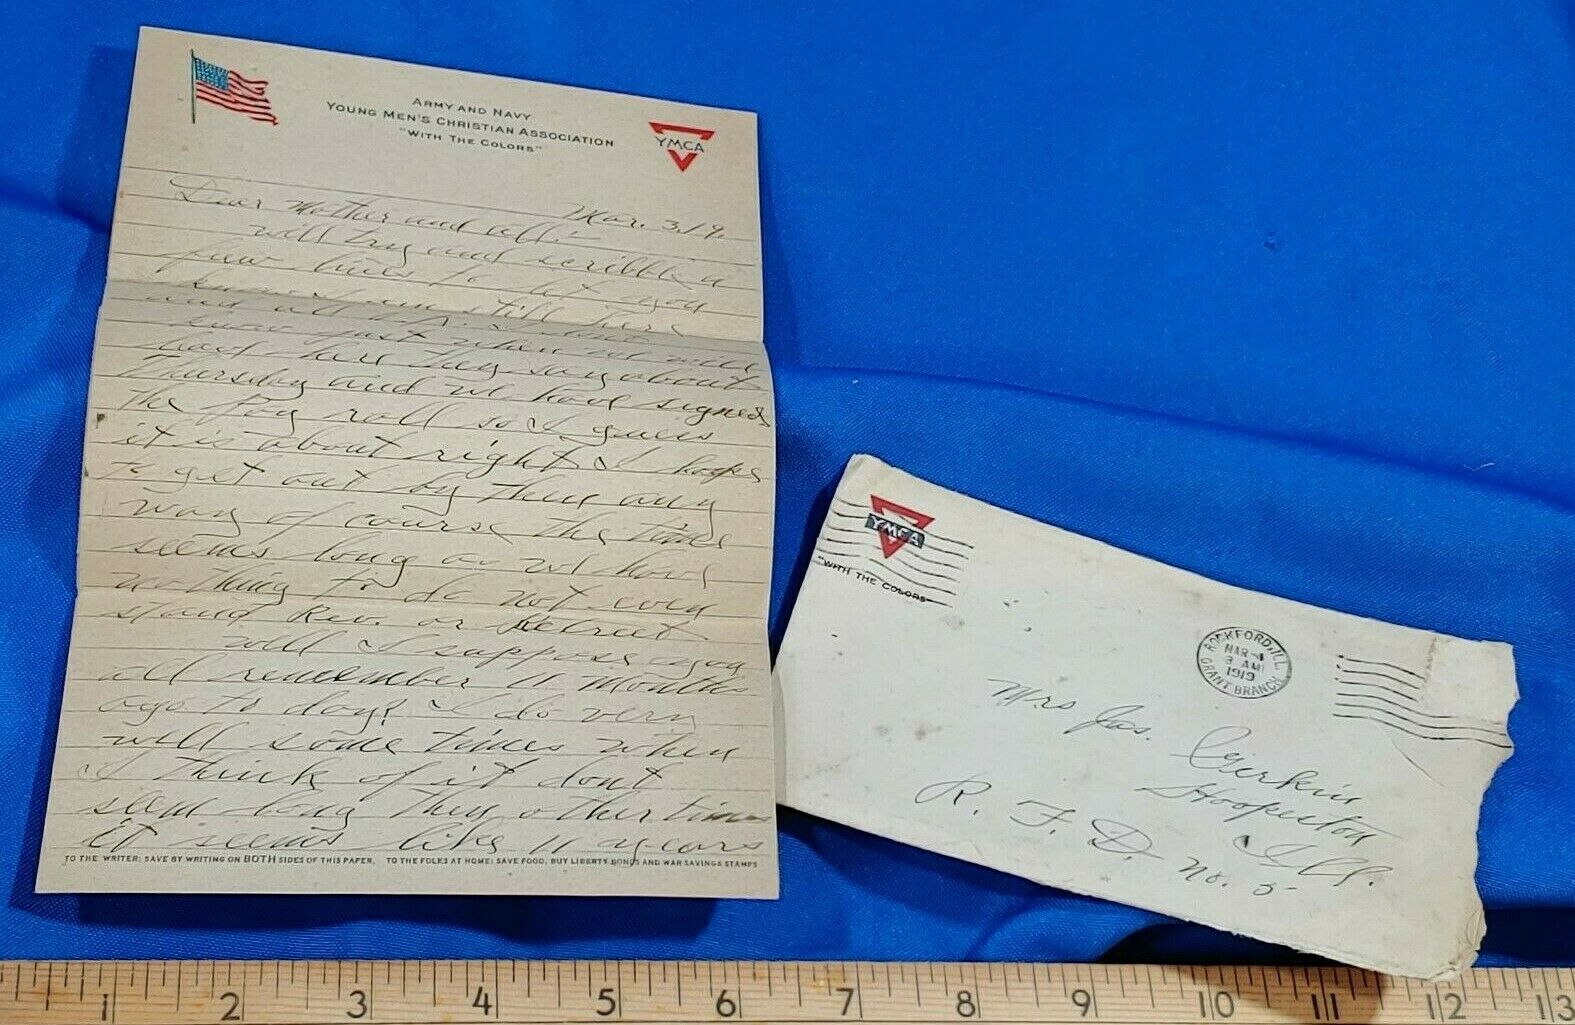 ARMY AND NAVY
YOUNG MEN'S CHRISTIAN ASSOCIATION
"WITH THE COLORS"
YMCA
Mar. 3, 19.
Dear Mother and all:-
will try and scribble a
few lines to let you
know I am still here
and all O.K. I don't
know just when we will
leave here they say about
Thursday and we have signed
the Pay roll so I guess
it is about right I hope
to get out by then any
way of course the time
seems long as we have
nothing to do not even
stand Rev. or Retreet
will I suppose you
all remember 11 months
ago to day? I do very
well some times when
I think of it dont
seem long then other times
it seems like 11 years
TO THE WRITER: SAVE BY WRITING ON BOTH SIDES OF THIS PAPER. TO THE FOLKS AT HOME: SAVE FOOD, BUY LIBERTY BONDS AND WAR SAVINGS STAMPS
YMCA
"WITH THE COLORS"
ROCKFORD, ILL.
MAR-4
3 AM
1919
GRANT BRANCH
Mrs Jas. Girkin
Hoopeston
Ill.
R. F. D. No. 5
1 2 3 4 5 6 7 8 9 10 11 12 13